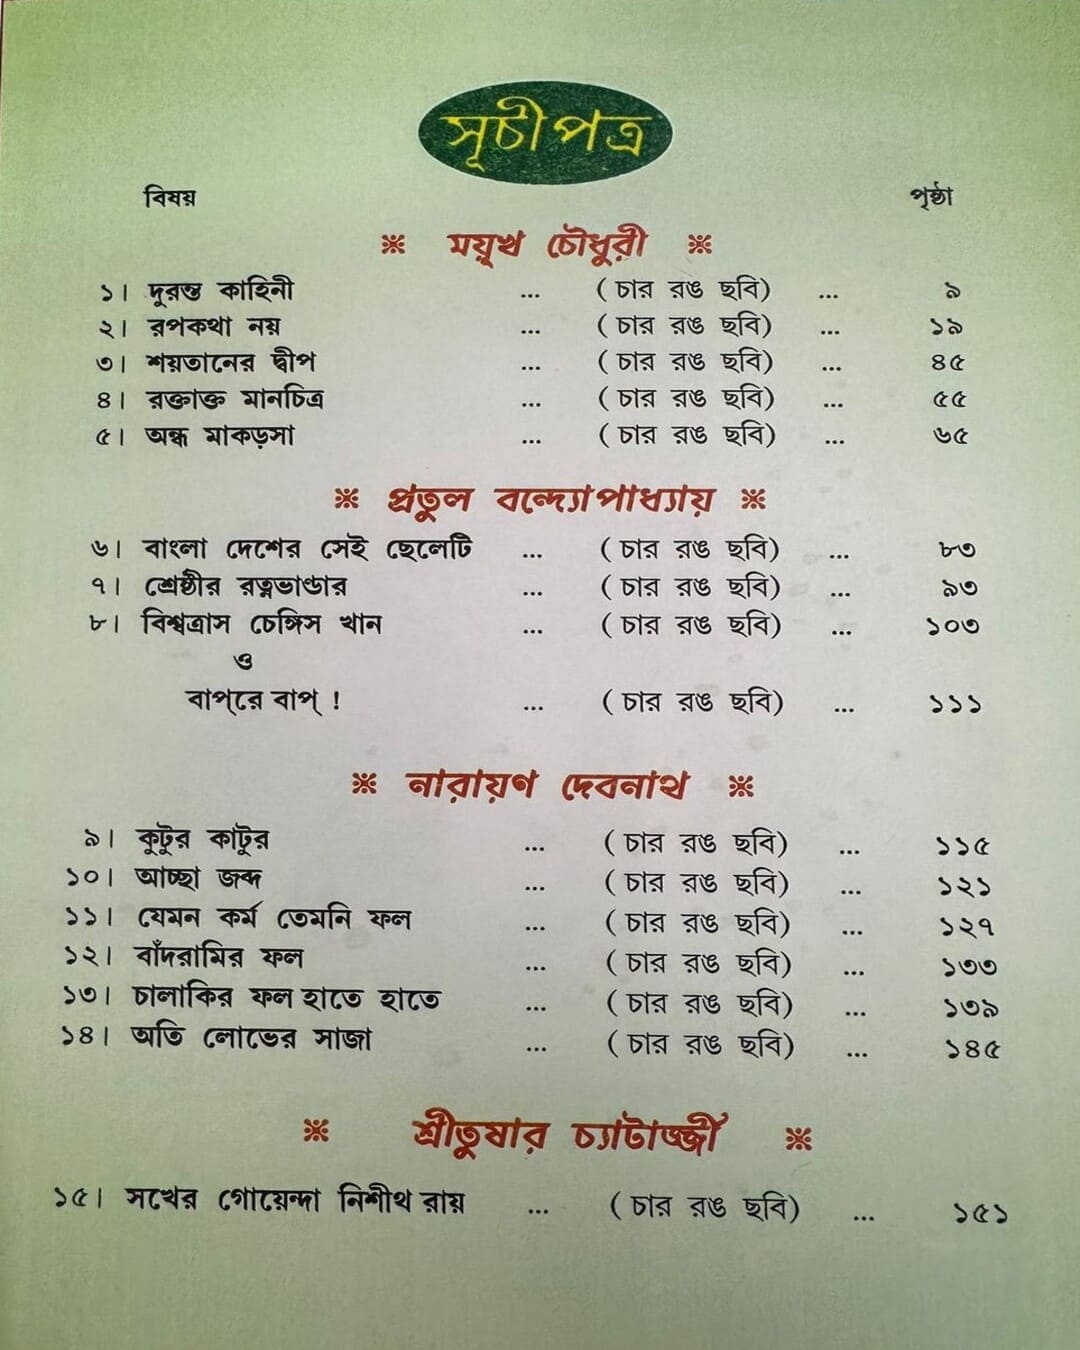 সূচীপত্র
বিষয় পৃষ্ঠা
※ ময়ূখ চৌধুরী ※
১। দুরন্ত কাহিনী ... ( চার রঙ ছবি) ... ৯
২। রূপকথা নয় ... ( চার রঙ ছবি) ... ১৯
৩। শয়তানের দ্বীপ ... ( চার রঙ ছবি) ... ৪৫
৪। রক্তাক্ত মানচিত্র ... ( চার রঙ ছবি) ... ৫৫
৫। অন্ধ মাকড়সা ... ( চার রঙ ছবি) ... ৬৫
※ প্রতুল বন্দ্যোপাধ্যায় ※
৬। বাংলা দেশের সেই ছেলেটি ... ( চার রঙ ছবি) ... ৮৩
৭। শ্রেষ্ঠীর রত্নভাণ্ডার ... ( চার রঙ ছবি) ... ৯৩
৮। বিশ্বত্রাস চেঙ্গিস খান ... ( চার রঙ ছবি) ... ১০৩
ও
বাপ্‌রে বাপ্ ! ... ( চার রঙ ছবি) ... ১১১
※ নারায়ণ দেবনাথ ※
৯। কুটুর কাটুর ... ( চার রঙ ছবি) ... ১১৫
১০। আচ্ছা জব্দ ... ( চার রঙ ছবি) ... ১২১
১১। যেমন কর্ম তেমনি ফল ... ( চার রঙ ছবি) ... ১২৭
১২। বাঁদরামির ফল ... ( চার রঙ ছবি) ... ১৩৩
১৩। চালাকির ফল হাতে হাতে ... ( চার রঙ ছবি) ... ১৩৯
১৪। অতি লোভের সাজা ... ( চার রঙ ছবি) ... ১৪৫
※ শ্রীতুষার চ্যাটার্জ্জী ※
১৫। সখের গোয়েন্দা নিশীথ রায় ... ( চার রঙ ছবি) ... ১৫১